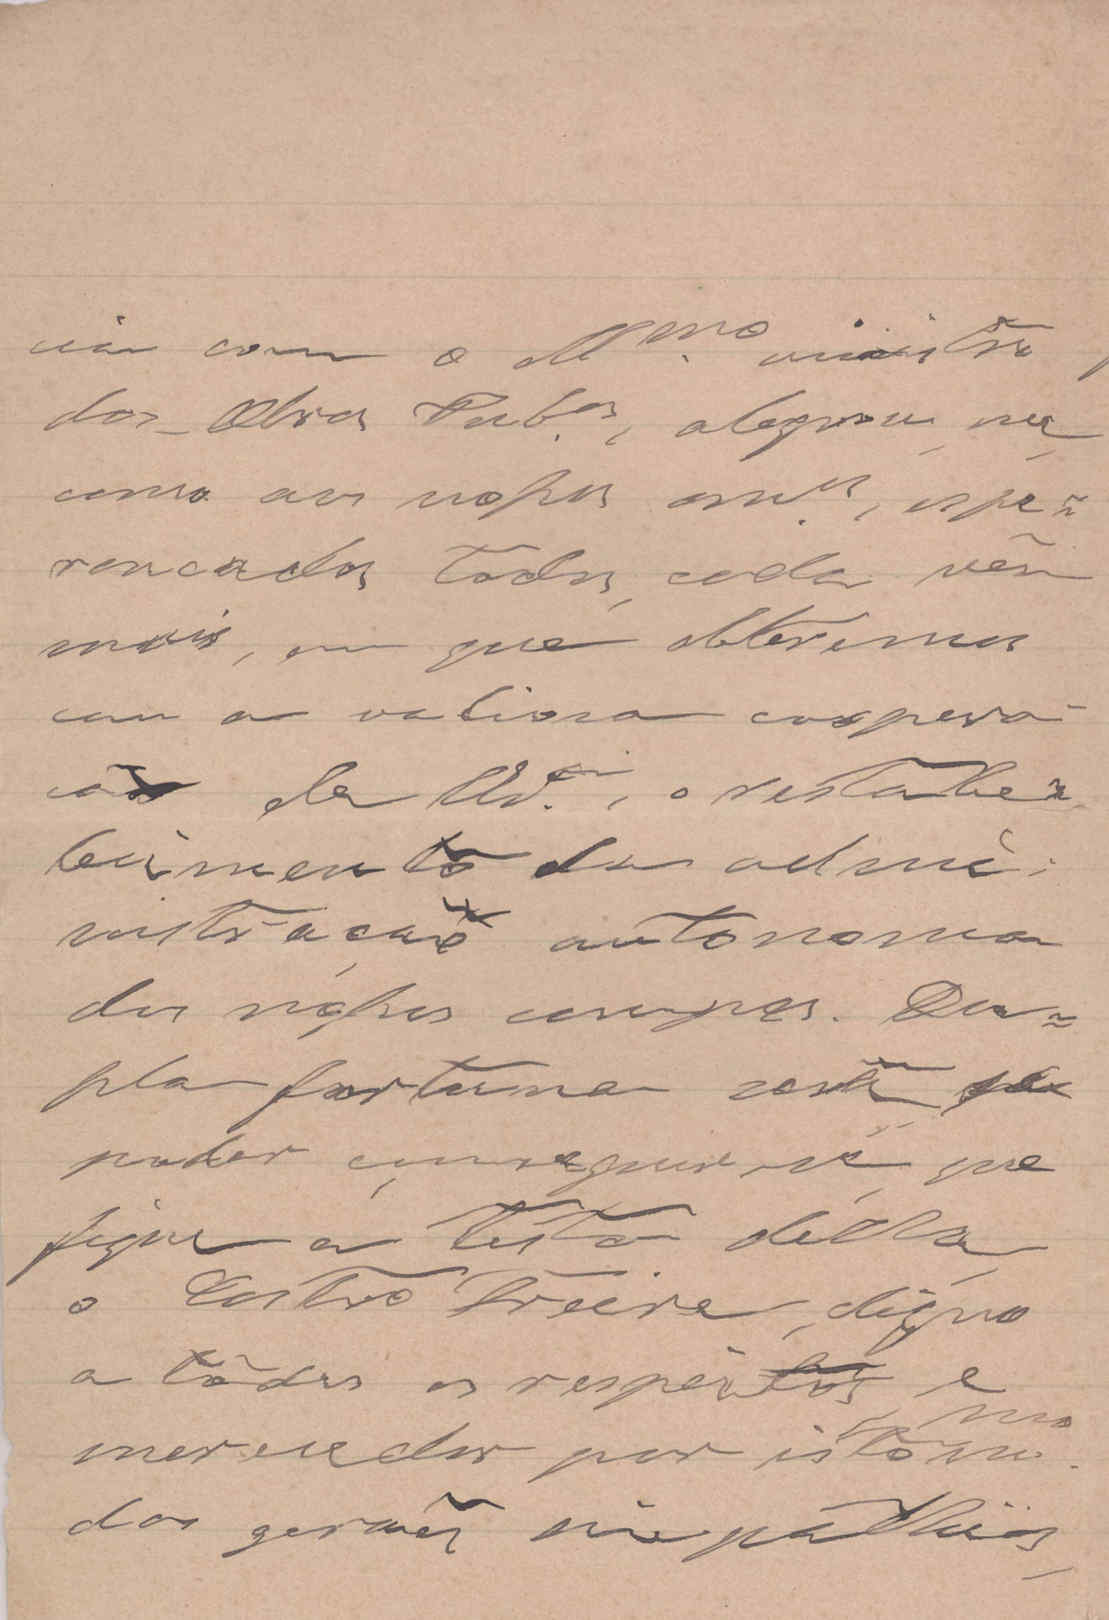 cia com o Ill.mo ministro
das Obras Pub.as, alegrou-me
como aos nossos am.os, espe=
rançados todos, cada vês
mais, em que obteremos
com a valiosa coopera-
ção de V. , o restabe=
lecimento da admi-
nistração autonoma
dos nossos campos. Du=
pla fortuna será se
poder conseguir-se que
fique a testa della
o Castro Freire, digno
a tôdos os respeitos e
merecedor por isto mmo
das geraes sympathias,